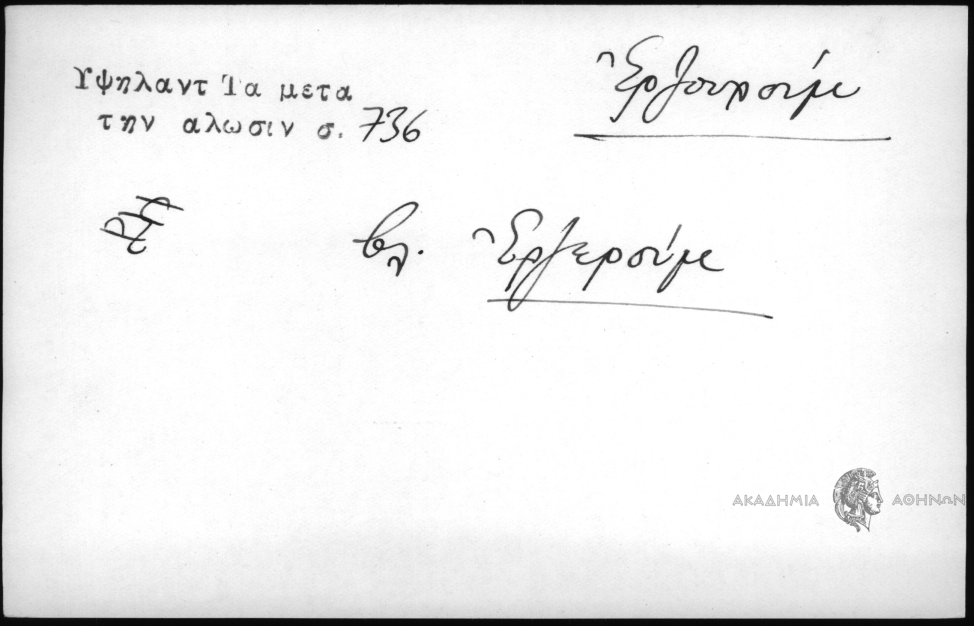 Ὑψηλαντ Τα μετα
την αλωσιν σ. 736
Ἐρζουρούμ
βλ. Ἐρζερούμ
ΑΚΑΔΗΜΙΑ ΑΘΗΝΩΝ